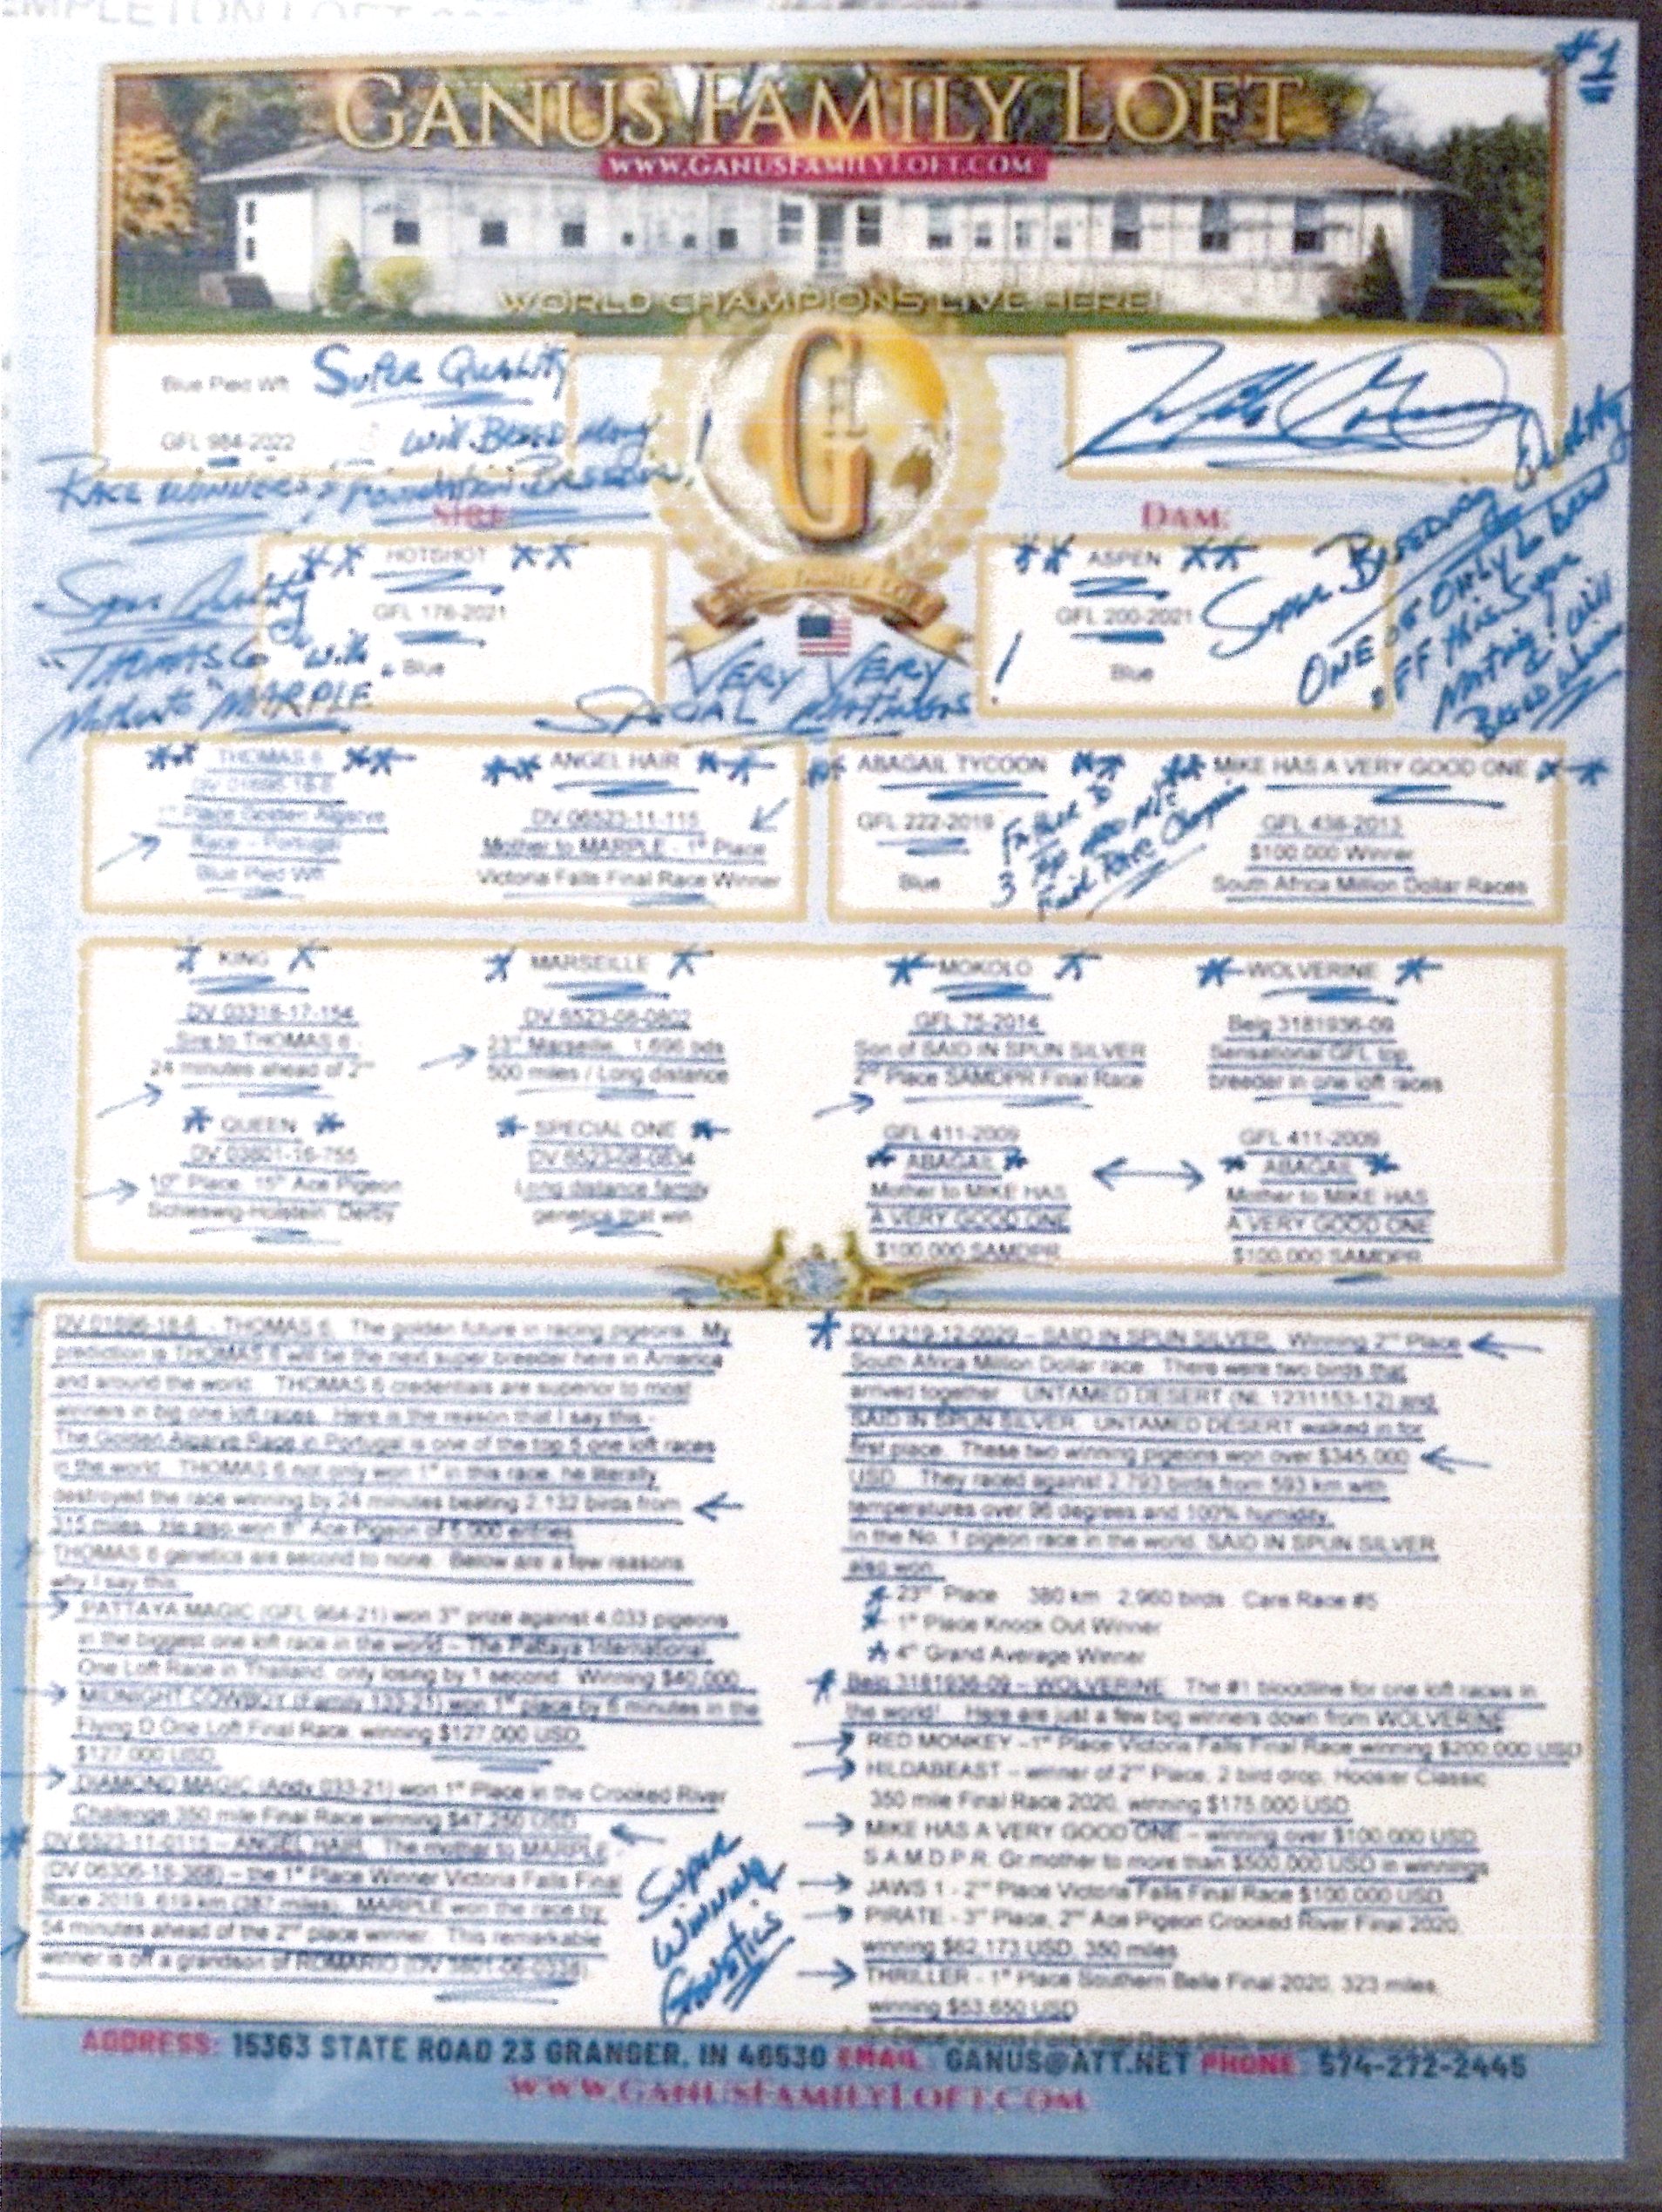 #1
GANUS FAMILY LOFT
WWW.GANUSFAMILYLOFT.COM
WORLD CHAMPIONS LIVE HERE!
Blue Pied Wft Super Quality
GFL 984-2022 will Breed Many
Race winners & Foundation Breeders!
SIRE
DAM:
** HOTSHOT **
GFL 176-2021
Blue
Super Quality
"Thomas 6" with
Mother to "MARPLE"
VERY VERY
SPECIAL MATINGS!
** ASPEN **
GFL 200-2021
Blue
Super Breeding Quality
ONE OF ONLY to breed
off this Super
Mating! Will
Breed Winners
** THOMAS 6 **
DV 01696-18-6
1st Place Golden Algarve
Race - Portugal
Blue Pied Wft
** ANGEL HAIR **
DV 06523-11-115
Mother to MARPLE - 1st Place
Victoria Falls Final Race Winner
ABAGAIL TYCOON **
GFL 222-2019
Blue
Father to
3
Final Race Champion
** MIKE HAS A VERY GOOD ONE **
GFL 436-2013
$100,000 Winner
South Africa Million Dollar Races
* KING *
DV 03318-17-154
Sire to THOMAS 6 -
24 minutes ahead of 2nd
* QUEEN *
DV 03801-16-755
10th Place, 15th Ace Pigeon
Schleswig-Holstein Derby
* MARSEILLE *
DV 6523-08-0802
23rd Marseille, 1,696 pds
500 miles / Long distance
* SPECIAL ONE *
DV 6523-08-0834
Long distance family
genetics that win
* MOKOLO *
GFL 75-2014
Son of SAID IN SPUN SILVER
2nd Place SAMDPR Final Race
GFL 411-2009
* ABAGAIL *
Mother to MIKE HAS
A VERY GOOD ONE
$100,000 SAMDPR
* WOLVERINE *
Belg 3181936-09
Sensational GFL top
breeder in one loft races
GFL 411-2009
* ABAGAIL *
Mother to MIKE HAS
A VERY GOOD ONE
$100,000 SAMDPR
DV 01696-18-6 - THOMAS 6. The golden future in racing pigeons. My
prediction is THOMAS 6 will be the next super breeder here in America
and around the world. THOMAS 6 credentials are superior to most
winners in big one loft races. Here is the reason that I say this -
The Golden Algarve Race in Portugal is one of the top 5 one loft races
in the world. THOMAS 6 not only won 1st in this race, he literally
destroyed the race winning by 24 minutes beating 2,132 birds from
315 miles. He also won 8th Ace Pigeon of 5,000 entries.
THOMAS 6 genetics are second to none. Below are a few reasons
why I say this:
PATTAYA MAGIC (GFL 964-21) won 3rd prize against 4,033 pigeons
in the biggest one loft race in the world - The Pattaya International
One Loft Race in Thailand, only losing by 1 second. Winning $40,000.
MIDNIGHT COWBOY (Family 133-21) won 1st place by 6 minutes in the
Flying D One Loft Final Race, winning $127,000 USD.
$127,000 USD.
DIAMOND MAGIC (Andy 033-21) won 1st Place in the Crooked River
Challenge 350 mile Final Race winning $47,250 USD
DV 6523-11-0115 - ANGEL HAIR. The mother to MARPLE -
(DV 06306-18-368) – the 1st Place Winner Victoria Falls Final
Race 2019, 619 km (387 miles). MARPLE won the race by
54 minutes ahead of the 2nd place winner. This remarkable
winner is off a grandson of ROMARIO (DV 3801-06-0338).
Super
Winning
Genetics
* DV 1219-12-0029 – SAID IN SPUN SILVER. Winning 2nd Place
South Africa Million Dollar race. There were two birds that
arrived together. UNTAMED DESERT (NL 1231153-12) and
SAID IN SPUN SILVER. UNTAMED DESERT walked in for
first place. These two winning pigeons won over $345,000
USD. They raced against 2,793 birds from 593 km with
temperatures over 96 degrees and 100% humidity.
In the No. 1 pigeon race in the world, SAID IN SPUN SILVER
also won
* 23rd Place 380 km 2,960 birds Cars Race #5
* 1st Place Knock Out Winner
* 4th Grand Average Winner
* Belg 3181936-09 – WOLVERINE. The #1 bloodline for one loft races in
the world! Here are just a few big winners down from WOLVERINE
RED MONKEY – 1st Place Victoria Falls Final Race winning $200,000 USD
HILDABEAST – winner of 2nd Place, 2 bird drop, Hoosier Classic
350 mile Final Race 2020, winning $175,000 USD
MIKE HAS A VERY GOOD ONE – winning over $100,000 USD
S.A.M.D.P.R. Gr.mother to more than $500,000 USD in winnings
JAWS 1 - 2nd Place Victoria Falls Final Race $100,000 USD
PIRATE - 3rd Place, 2nd Ace Pigeon Crooked River Final 2020,
winning $62,173 USD, 350 miles
THRILLER - 1st Place Southern Belle Final 2020, 323 miles,
winning $53,650 USD
ADDRESS: 15363 STATE ROAD 23 GRANGER, IN 46530 EMAIL: GANUS@ATT.NET PHONE: 574-272-2445
WWW.GANUSFAMILYLOFT.COM